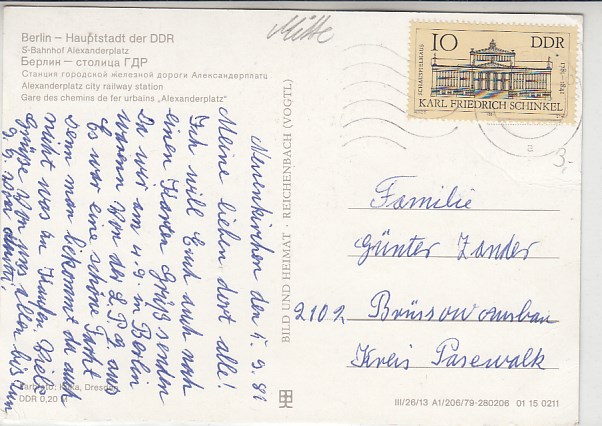 Berlin – Hauptstadt der DDR
S-Bahnhof Alexanderplatz
Берлин — столица ГДР
Станция городской железной дороги Александерплатц
Alexanderplatz city railway station
Gare des chemins de fer urbains „Alexanderplatz“
Mitte
10 DDR
SCHAUSPIELHAUS
1781–1841
KARL FRIEDRICH SCHINKEL
3,-
Neuenkirchen den 5.9.81
Meine lieben dort alle!
Ich will Euch auch noch
einen Karten Gruß senden
Da wir am 4.9. in Berlin
waren von der LPG aus
Es war eine schöne Fahrt
denn man bekommt da auch
noch was zu kaufen. Viele
Grüße von uns allen bis zum
BILD UND HEIMAT · REICHENBACH (VOGTL)
Familie
Günter Zander
2102 Brüssow Ausbau
Kreis Pasewalk
Dresden
DDR 0,20 M
III/26/13 A1/206/79-280206 01 15 0211